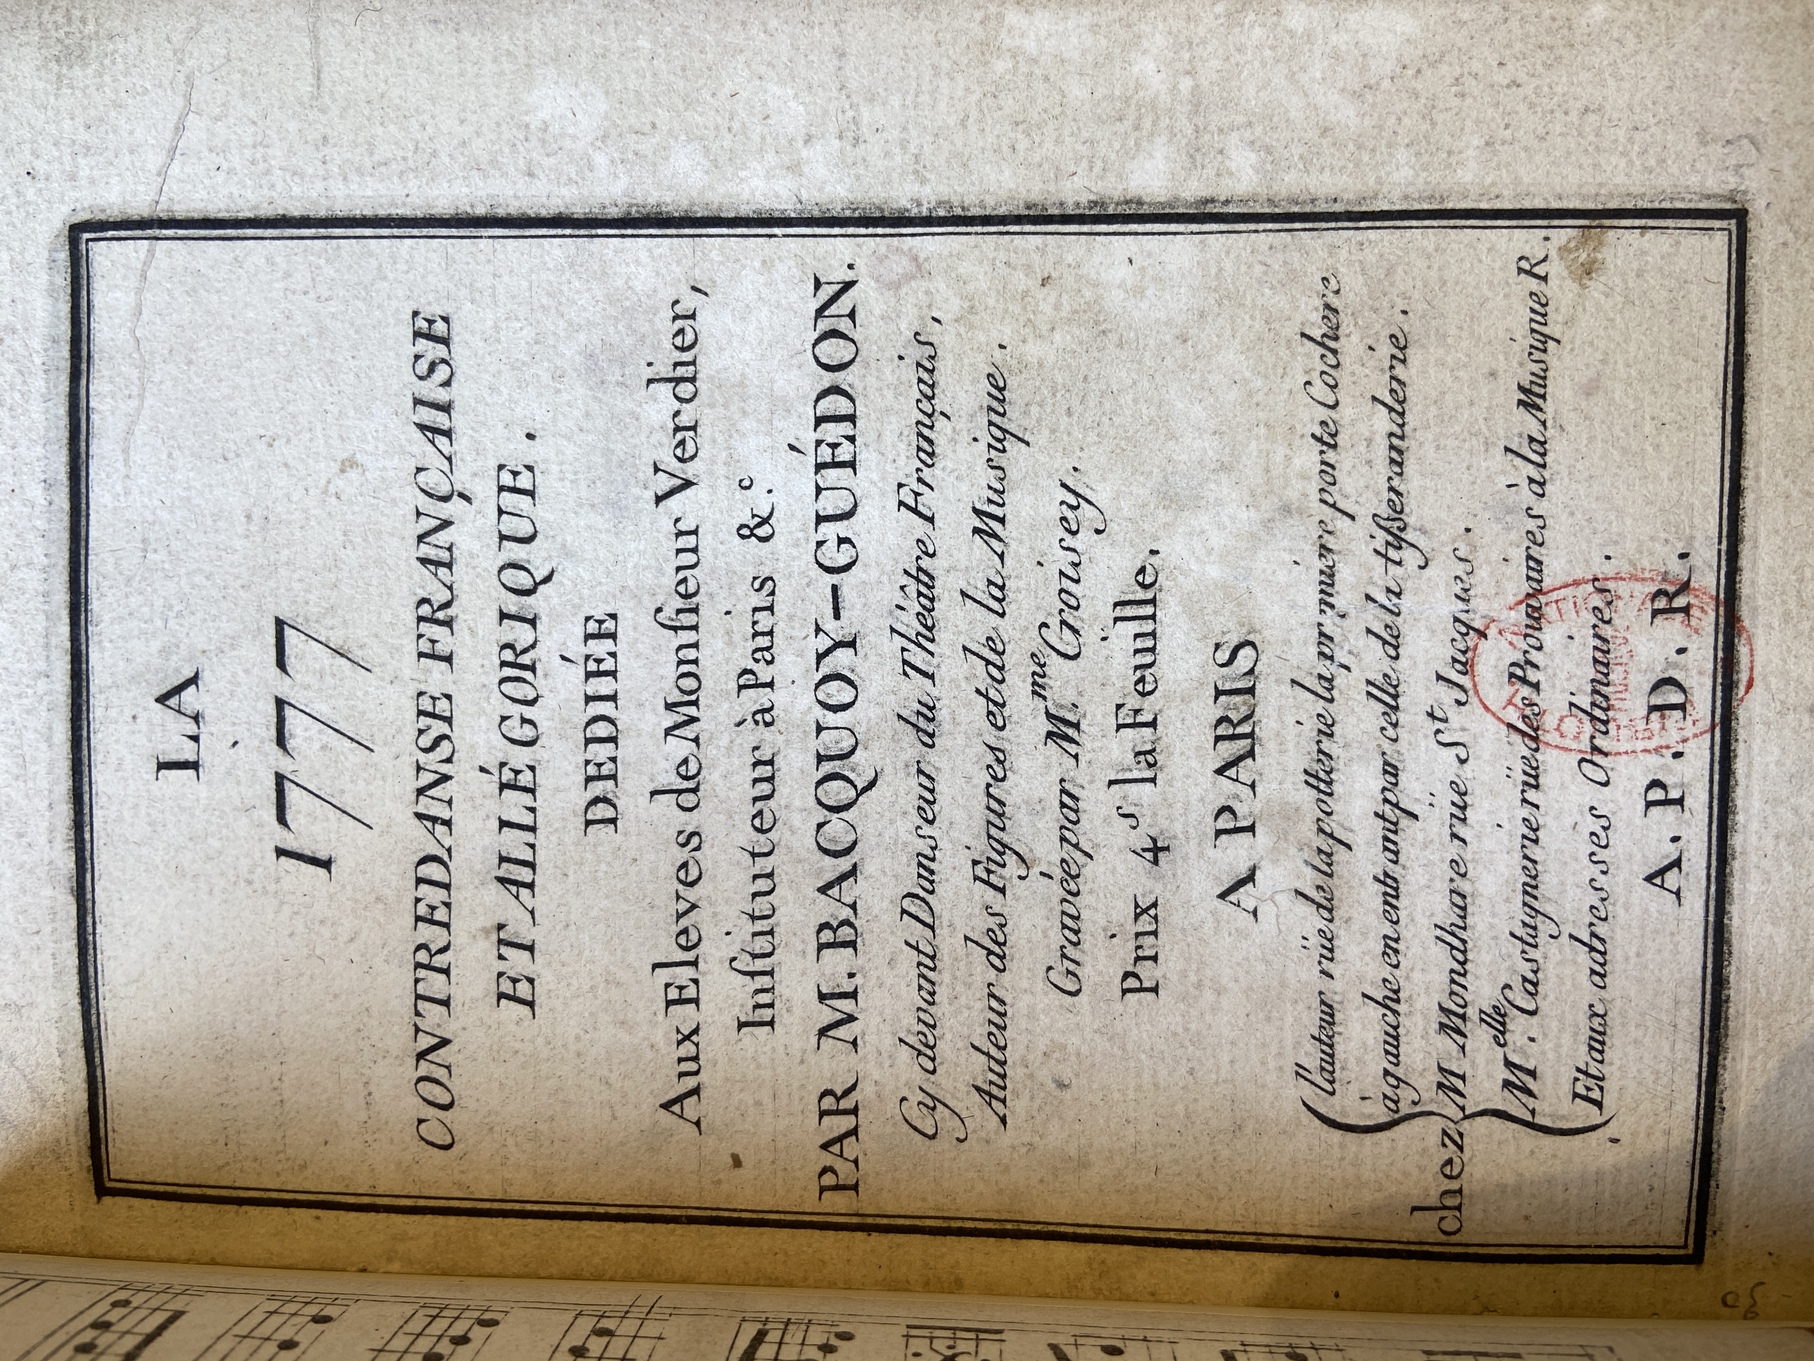 LA
1777
CONTREDANSE FRANÇAISE
ET ALLÉGORIQUE.
DEDIÉE
Aux Eleves de Monſieur Verdier,
Inſtituteur à Paris &.c
PAR M. BACQUOY-GUÉDON.
Cy devant Danseur du Théâtre Français,
Auteur des Figures et de la Musique.
Gravée par M.me Croisey.
Prix 4s la Feuille.
A PARIS
l'auteur rüe de la potterie la première porte Cochere
à gauche en entrant par celle de la tißeranderie.
chez M Mondhare rüe St Jacques.
M.elle Castagnerie rüe des Prouvaires à la Musique R.
Et aux adresses Ordinaires.
A. P. D. R.